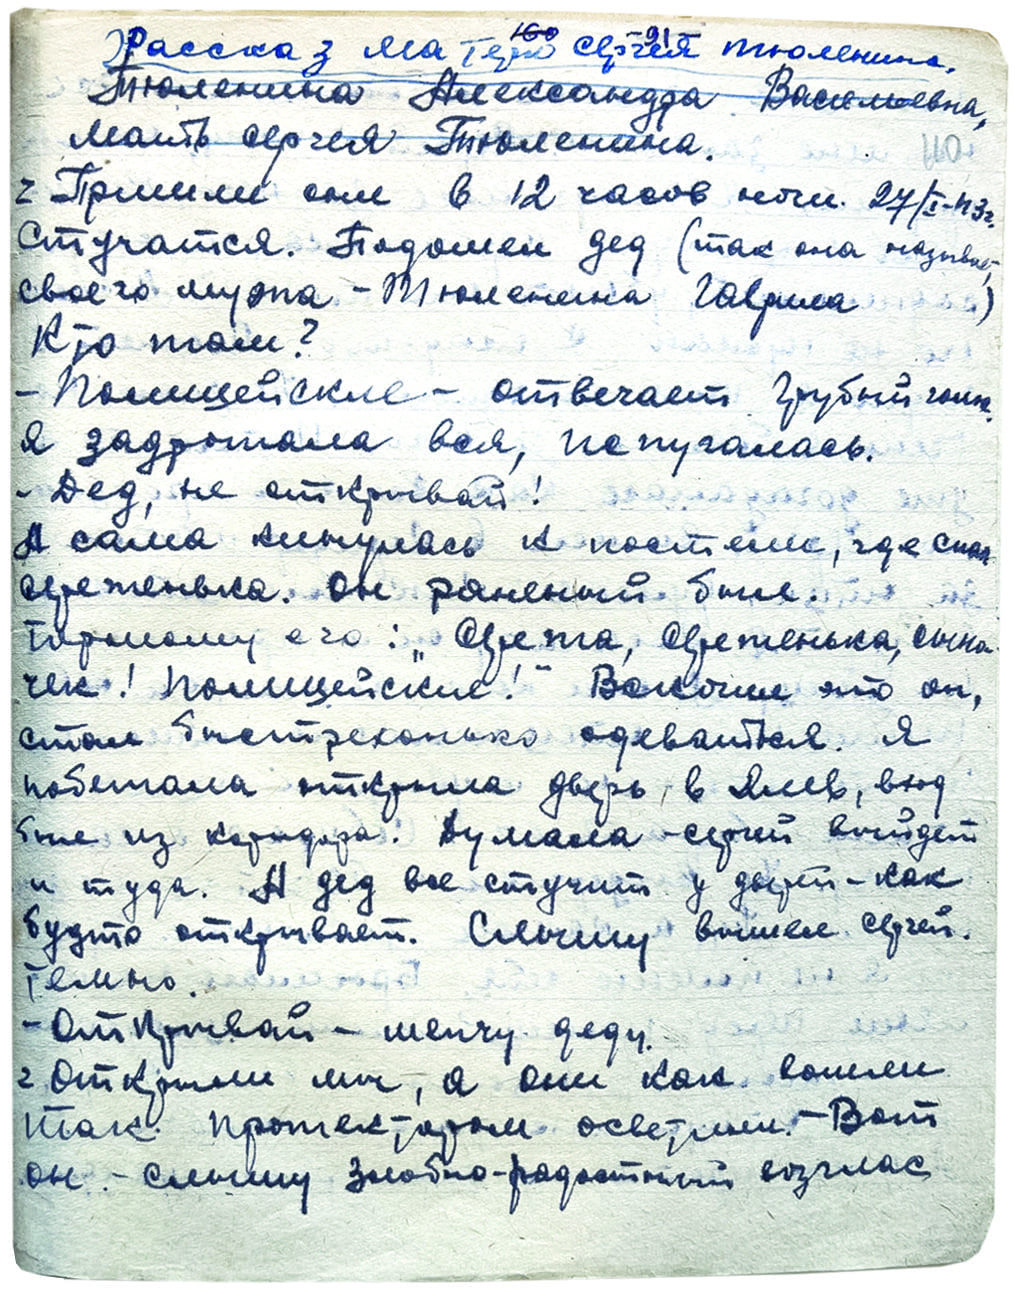 160 -91-
Рассказ матери Сергея Тюленина.
Тюленина Александра Васильевна,
мать Сергея Тюленина.
Пришли они в 12 часов ночи. 27/I-43г.
Стучатся. Подошел дед (так она называет
своего мужа - Тюленина Гаврила)
Кто там?
- Полицейские - отвечает грубый голос.
Я задрожала вся, испугалась.
- Дед, не открывай!
А сама кинулась к постели, где спал
Сереженька. Он раненый был.
Тормошу его: „Сережа, Сереженька, сыно-
чек! Полицейские!" Вскочил это он,
стал быстрехонько одеваться. Я
побежала открыла дверь в хлев, вход
был из коридора. Думала - Сергей выйдет
и туда. А дед все стучит у двери - как
будто открывает. Слышу вышел Сергей.
Темно.
- Открывай - шепчу деду.
Открыли мы, а они как вошли
так прожектором осветили. - Вот
он. - слышу злобно-радостный возглас